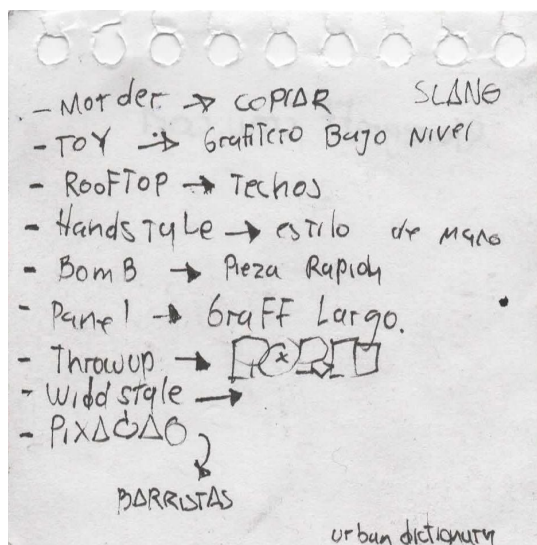 SLANG
- Morder → COPIAR
- TOY → Grafitero Bajo Nivel
- ROOFTOP → Techos
- HandsTyLe → esTilo de Mano
- BomB → Pieza Rapida
- Panel → Graff Largo.
- Throwup →
- Widdstyle →
- PiXAÇAO
BARRISTAS
urban dictionary